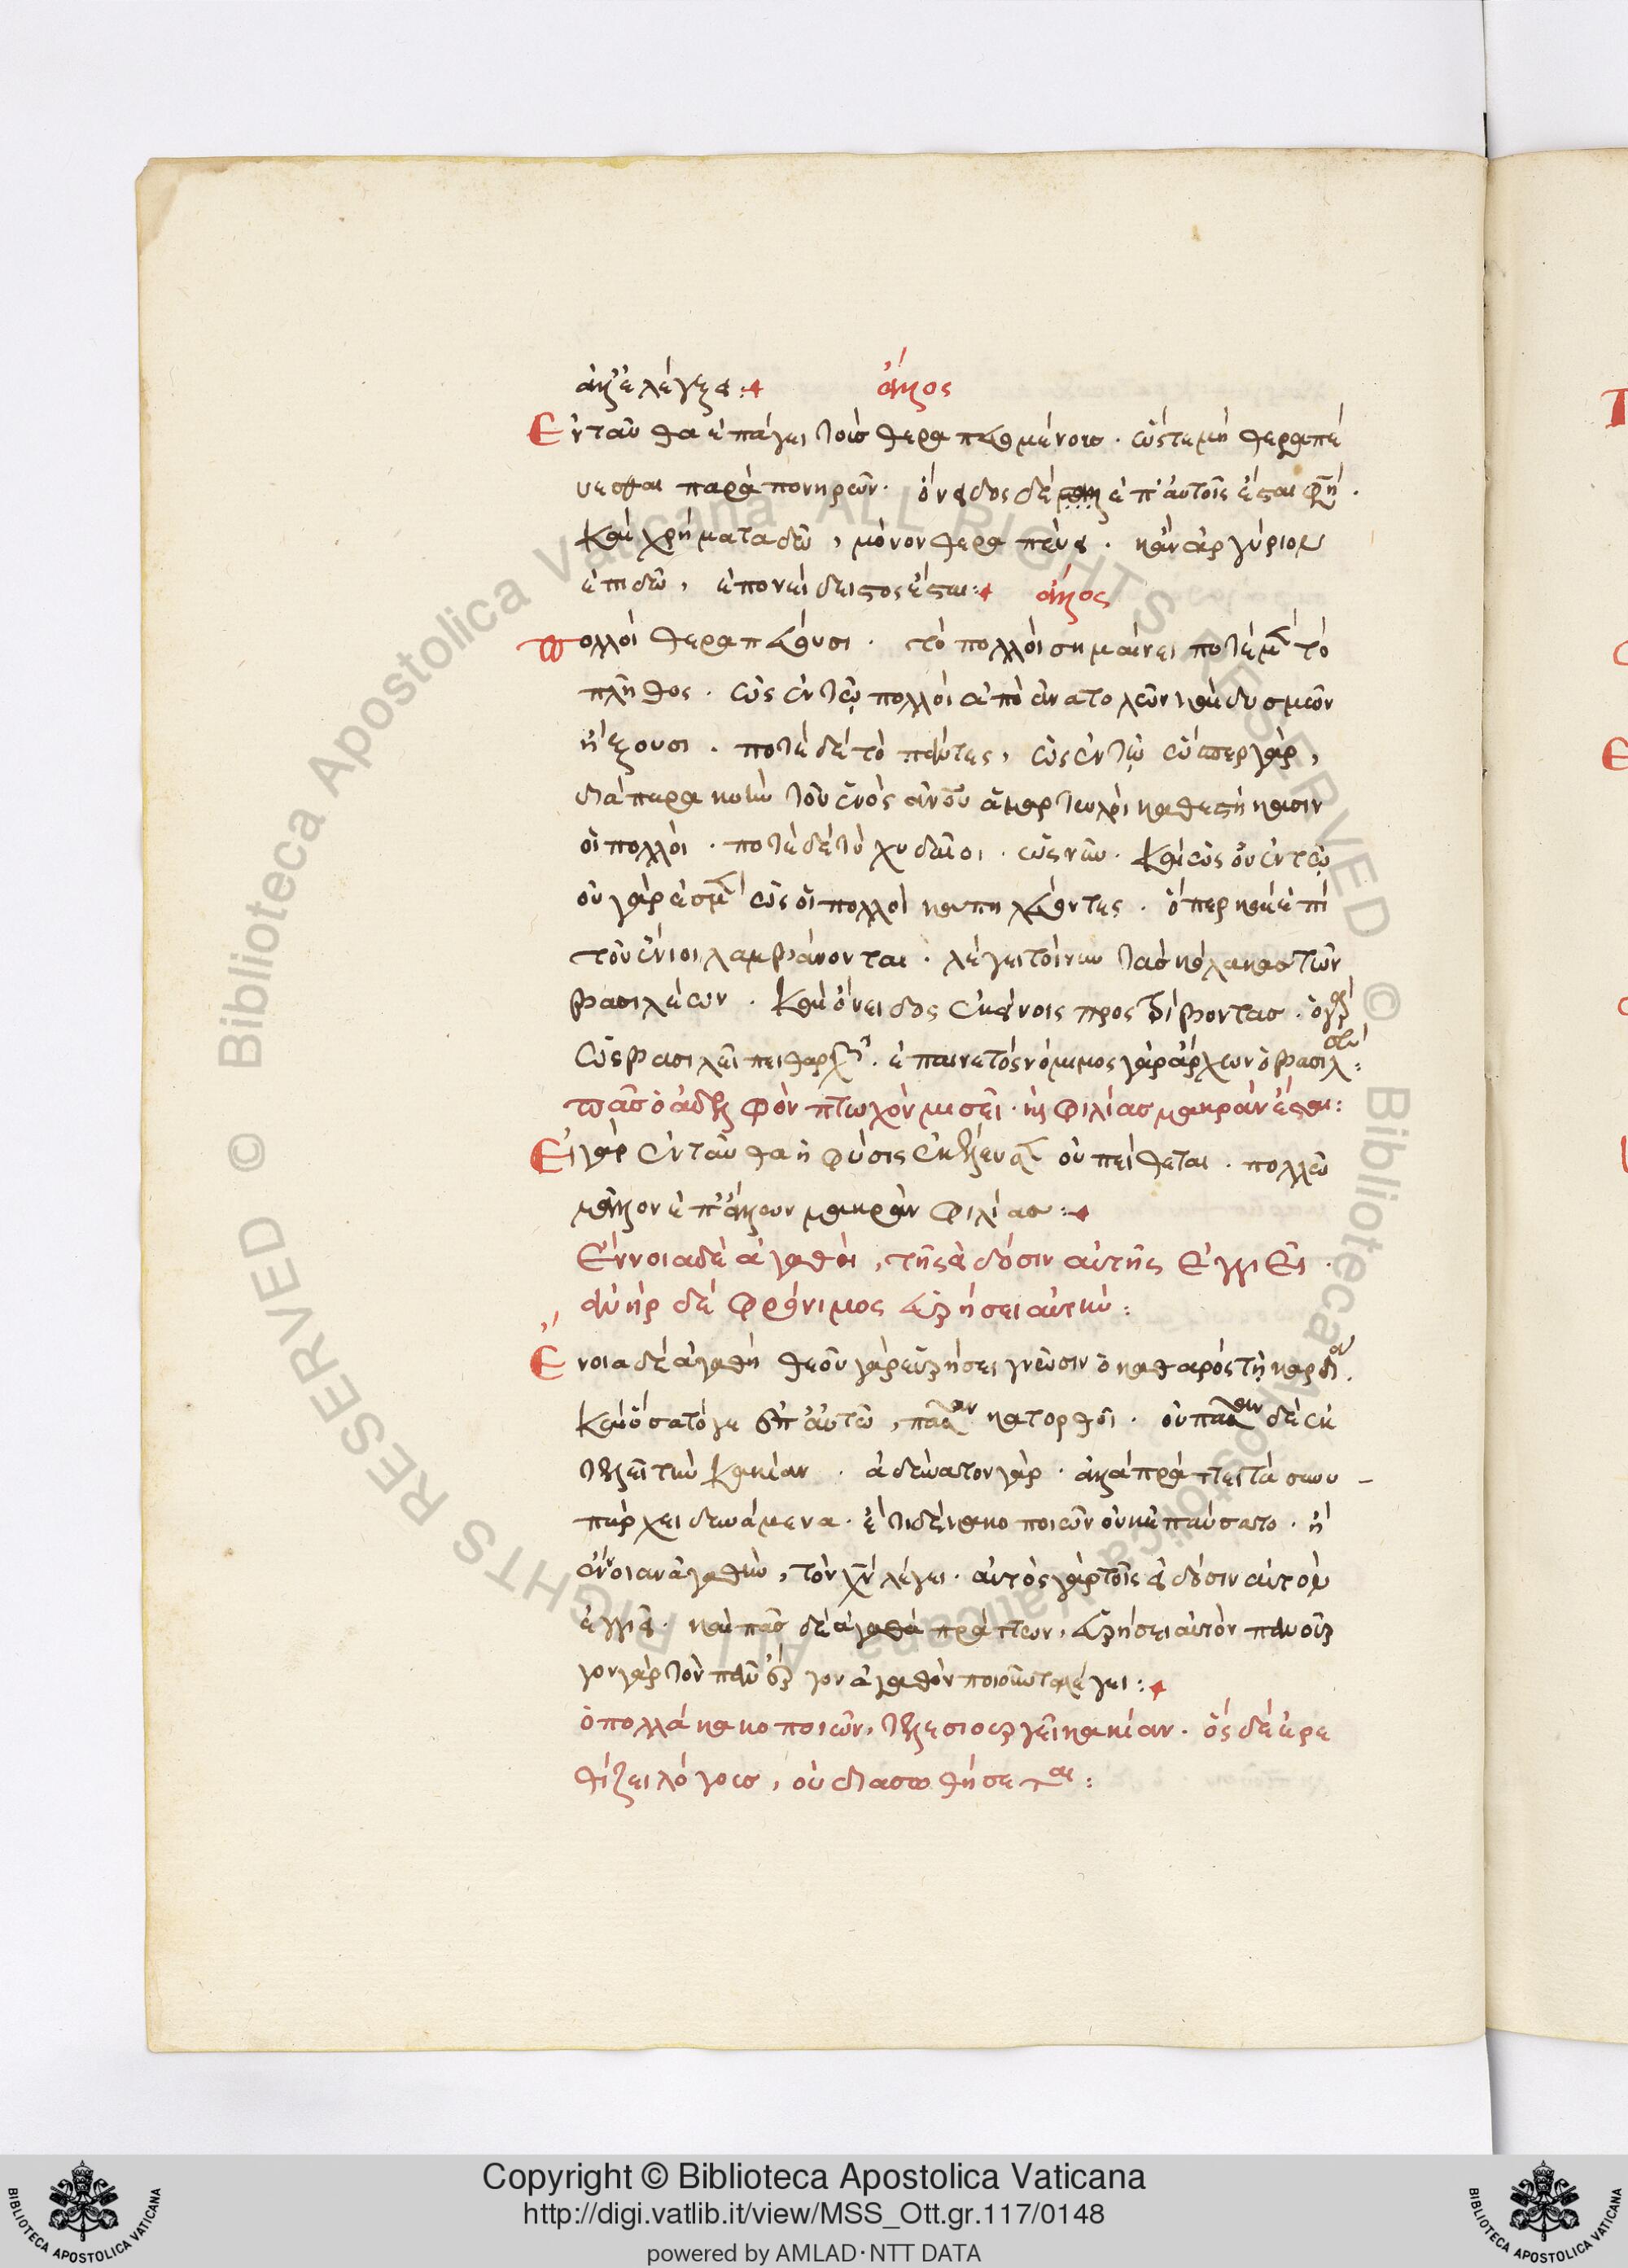 ἀλλ' ἐλέγξει :+ ἄλλος
Ἐνταῦθα ἐπάγει τοῖς θεραπευομένοις. ὥστε μὴ θεραπεύ
εσθαι παρὰ πονηρῶν. ὄνειδος δὲ ἐπ' αὐτοῖς ἔσται φησί.
κἂν χρήματα δῶ, μόνον θεραπεύει. κἂν ἀργύριον
ἐπιδῶ, ἐπονείδιστος ἔσται :+ ἄλλος
Πολλοὶ θεραπεύουσι. τὸ πολλοὶ σημαίνει ποτὲ μὲν τὸ
πλῆθος. ὡς ἐν τῷ πολλοὶ ἀπὸ ἀνατολῶν καὶ δυσμῶν
ἥξουσι. ποτὲ δὲ τὸ πάντες, ὡς ἐν τῷ ὥσπερ γὰρ,
διὰ παρακοὴν τοῦ ἑνὸς ἀνου ἁμαρτωλοὶ κατέστησαν
οἱ πολλοί. ποτὲ δὲ τὸ χυδαῖοι. ὡς νῦν. καὶ ὡς οὖν ἐν τῷ
οὐ γάρ ἐσμεν ὡς οἱ πολλοὶ καπηλεύοντες. ὅπερ καὶ ἐπὶ
τοῦ ἔνιοι λαμβάνονται. λέγει τοίνυν τοὺς κόλακας τῶν
βασιλέων. καὶ ὄνειδος ἐκείνοις προστρίβοντας.
ὡς βασιλεῖ πειθαρχῶν. ἐπαινετὸς νόμιμος γὰρ ἄρχων ὁ βασιλεύς :
πᾶς ὁ ἀδελφὸν πτωχὸν μισεῖ. καὶ φιλίας μακρὰν ἔσται :
Εἰ γὰρ ἐνταῦθα ἡ φύσις ἐκέλευσε οὐ πείθεται. πολλῷ
μᾶλλον ἐπ' ἄλλων μακρὰν φιλίας :+
Ἔννοια δὲ ἀγαθὴ, τοῖς εἰδόσιν αὐτῆς ἐγγιεῖ.
ἀνὴρ δὲ φρόνιμος εὑρήσει αὐτήν :
Ἔνοια δὲ ἀγαθὴ θεοῦ γὰρ εὑρήσει γνῶσιν ὁ καθαρὸς τῇ καρδίᾳ.
καὶ ὅσα τό γε ἐπ' αὐτῷ, πᾶσαν κατορθοῖ. οὐ πᾶσαν δὲ ἐκ
τελεῖ τὴν κακίαν. ἀδύνατον γάρ. ἀλλὰ πράττει τὰ συνυ-
πάρχει δυνάμενα. ἔτι δὲ κακοποιῶν οὐκ ἐπαύσατο. ἢ
ἔννοιαν ἀγαθὴν, τὸν χν λέγει. αὐτὸς γὰρ τοῖς εἰδόσιν αὐτὸν
ἐγγιεῖ. καὶ πᾶς δὲ ἀγαθὰ πράττων, εὑρήσει αὐτὸν πανοῦρ
γον γὰρ τὸν πᾶν ἔργον ἀγαθὸν ποιοῦντα λέγει :+
ὁ πολλὰ κακοποιῶν, τελεσιουργεῖ κακίαν. ὃς δὲ ἐρε
θίζει λόγους, οὐ διασωθήσεται :
Copyright © Biblioteca Apostolica Vaticana
http://digi.vatlib.it/view/MSS_Ott.gr.117/0148
powered by AMLAD·NTT DATA